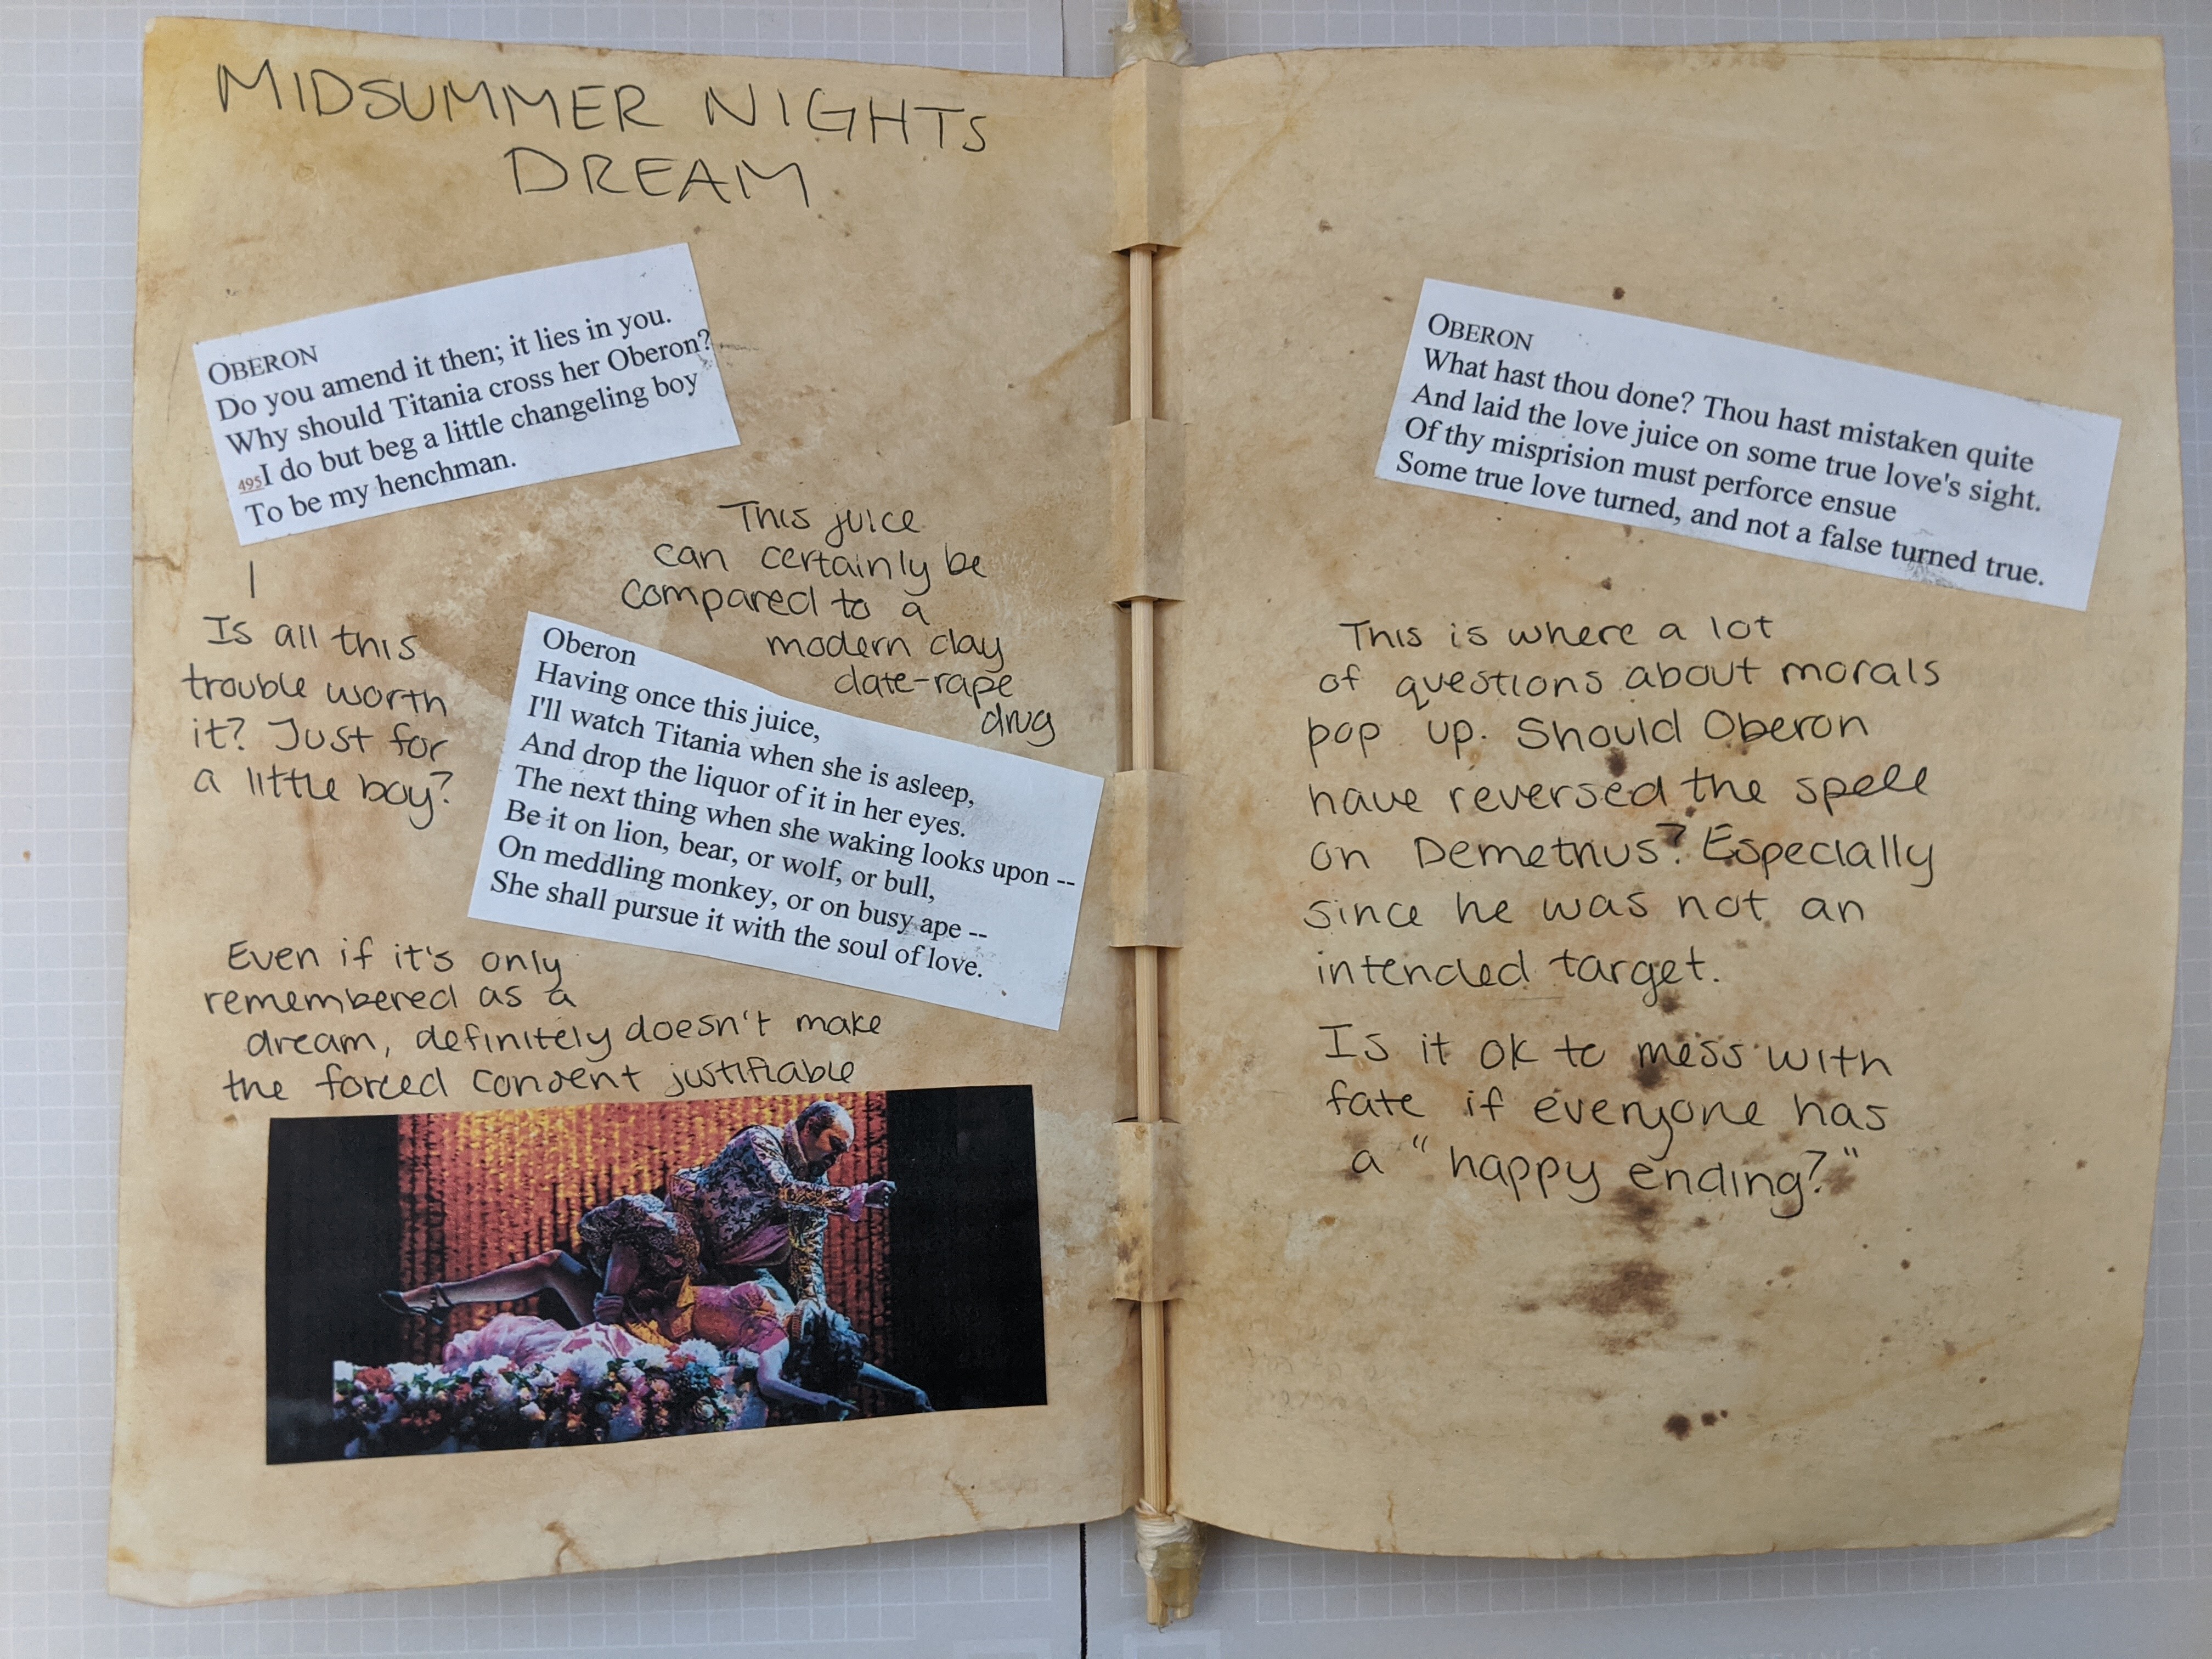 MIDSUMMER NIGHTS
DREAM
OBERON
Do you amend it then; it lies in you.
Why should Titania cross her Oberon?
495I do but beg a little changeling boy
To be my henchman.
Is all this
trouble worth
it? Just for
a little boy?
This juice
can certainly be
compared to a
modern day
date-rape
drug
Oberon
Having once this juice,
I'll watch Titania when she is asleep,
And drop the liquor of it in her eyes.
The next thing when she waking looks upon --
Be it on lion, bear, or wolf, or bull,
On meddling monkey, or on busy ape --
She shall pursue it with the soul of love.
Even if it's only
remembered as a
dream, definitely doesn't make
the forced consent justifiable
OBERON
What hast thou done? Thou hast mistaken quite
And laid the love juice on some true love's sight.
Of thy misprision must perforce ensue
Some true love turned, and not a false turned true.
This is where a lot
of questions about morals
pop up. Should Oberon
have reversed the spell
on Demetrius? Especially
since he was not an
intended target.
Is it ok to mess with
fate if everyone has
a "happy ending?"